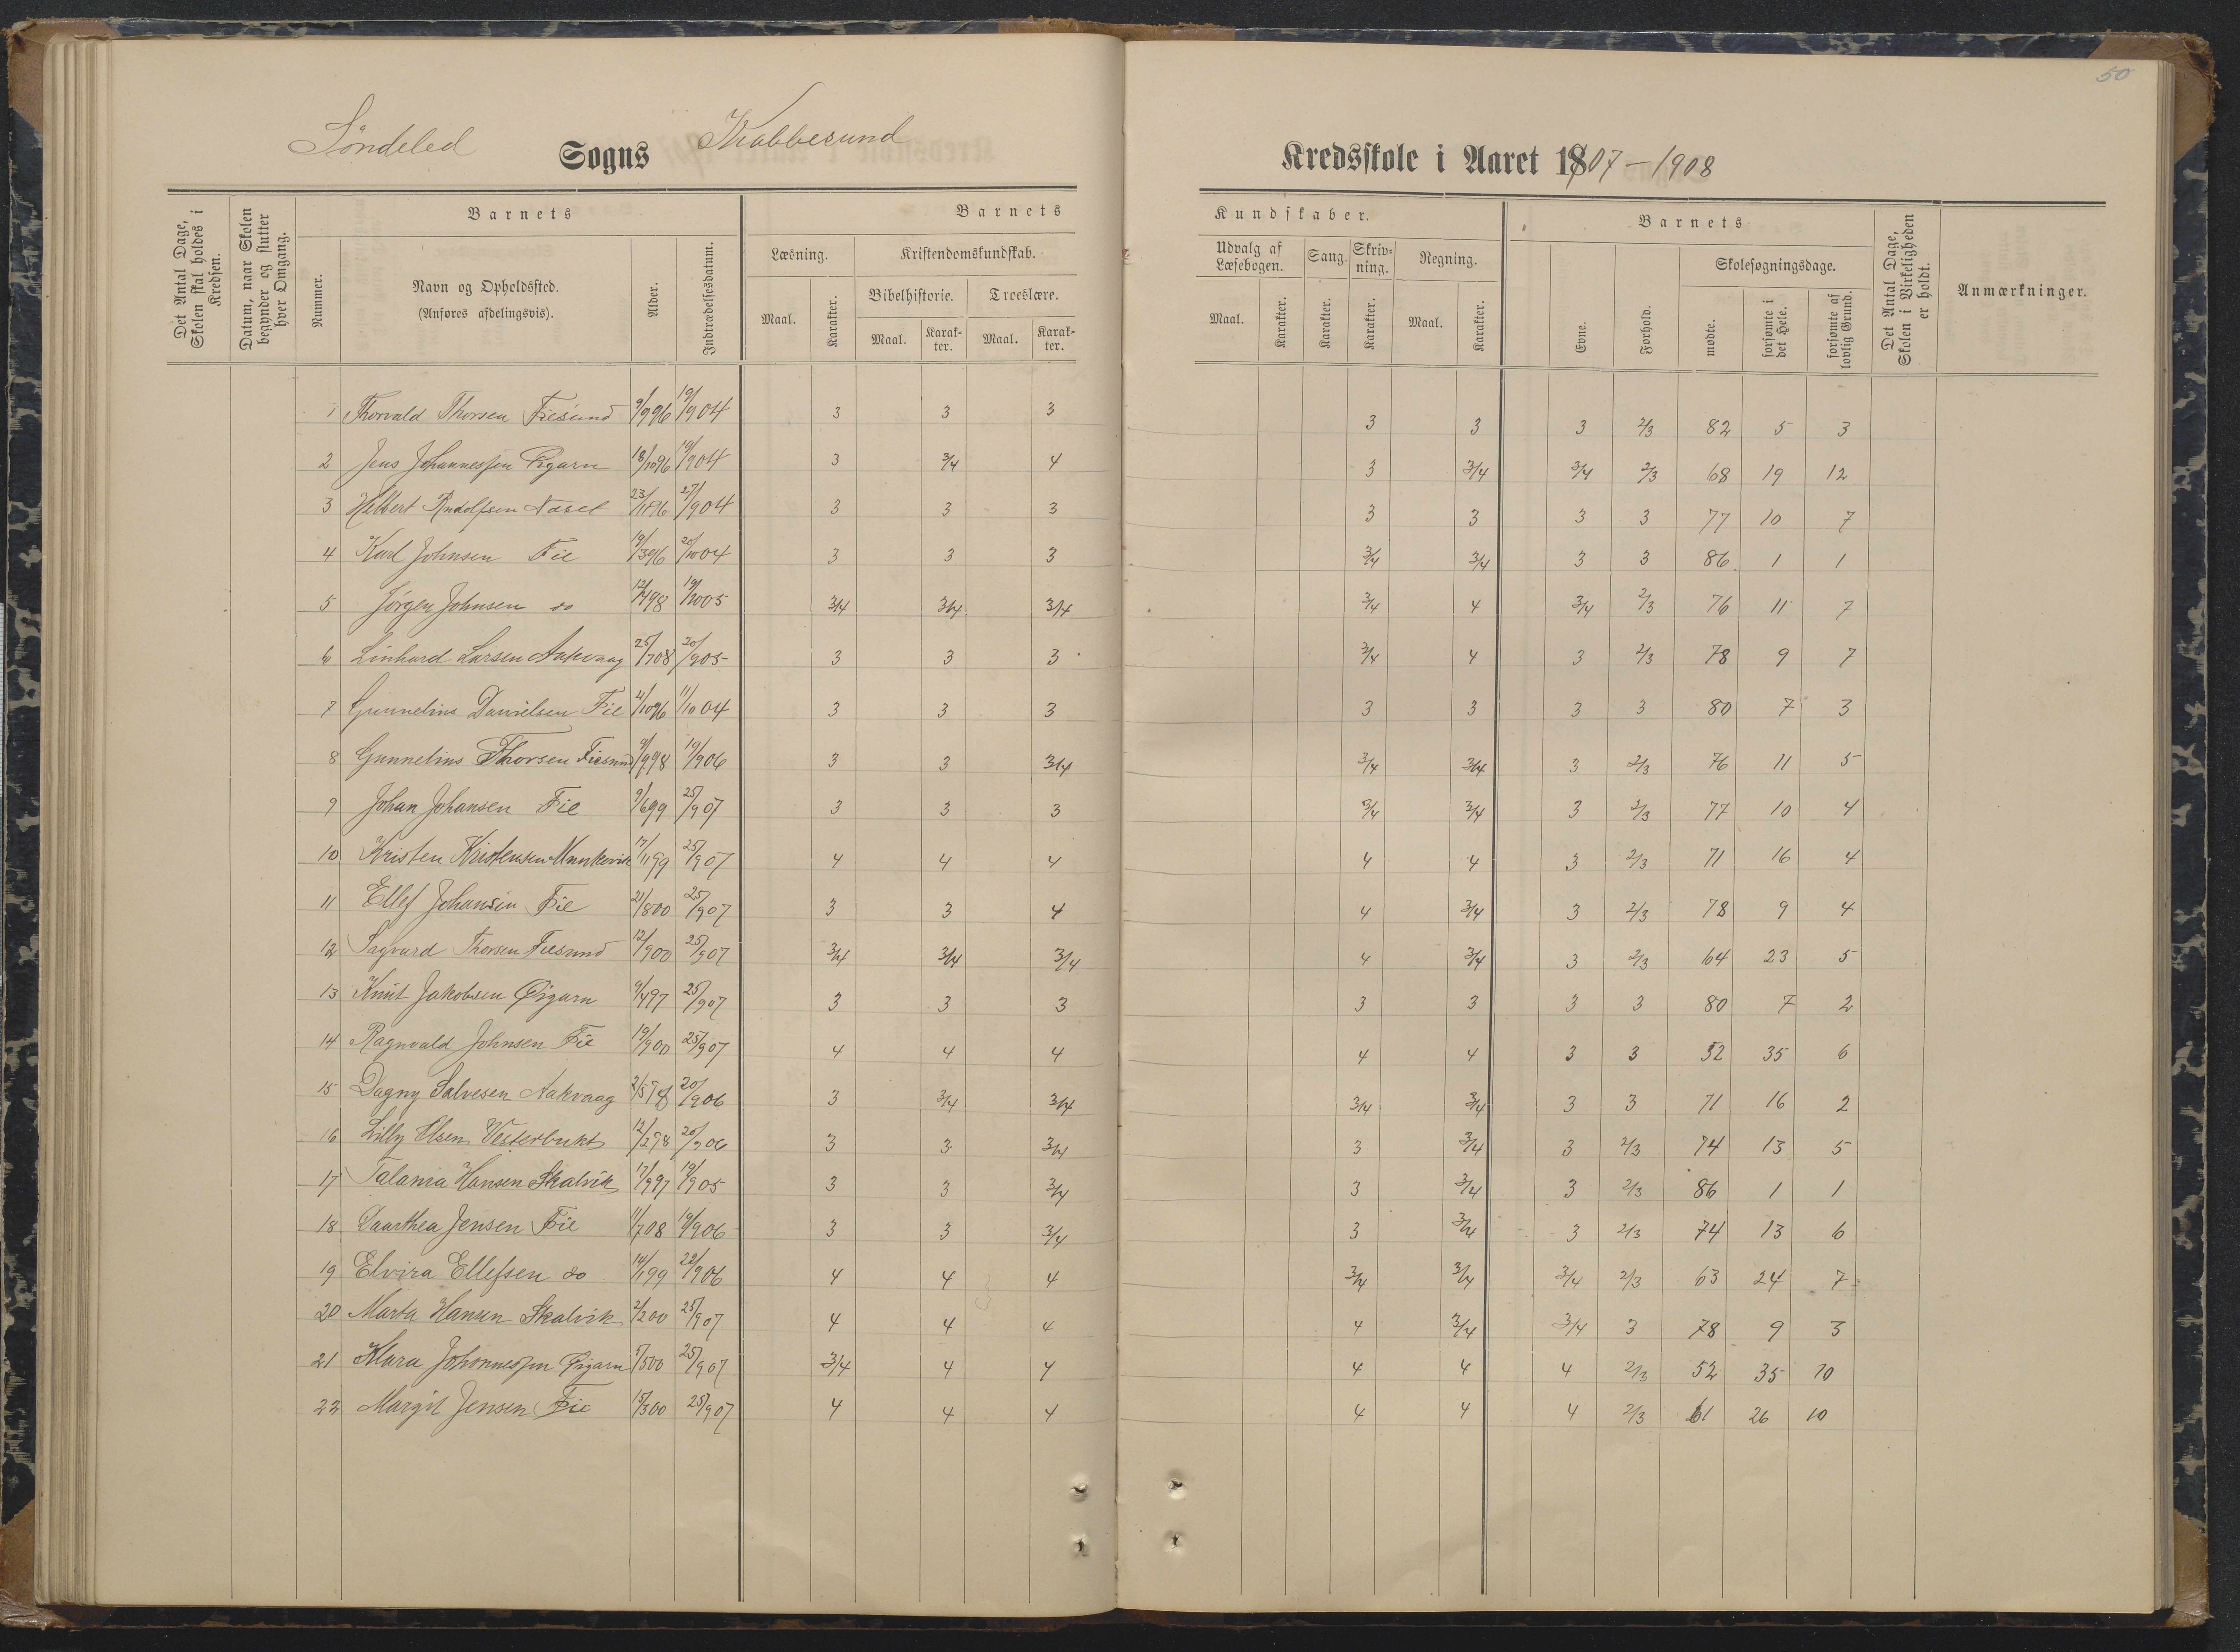 50
Söndeled Sogns Krabbesund Kredsskole i Aaret 1907-1908
Det Antal Dage, Skolen skal holdes i Kredsen.
Datum, naar Skolen begynder og slutter hver Omgang.
Barnets
Nummer.
Navn og Opholdssted.
(Anføres afdelingsvis).
Alder.
Indtrædelsesdatum.
Barnets Kundskaber.
Læsning. Kristendomskundskab. Udvalg af Læsebogen. Sang. Skrivning. Regning.
Bibelhistorie. Troeslære.
Maal. Karakter. Maal. Karakter. Maal. Karakter. Maal. Karakter. Karakter. Karakter. Maal. Karakter.
Barnets
Evne. Forhold. Skolesøgningsdage.
mødte. forsømte i det Hele. forsømte af lovlig Grund.
Det Antal Dage, Skolen i Virkeligheden er holdt.
Anmærkninger.
1 Thorvald Thorsen Fiesund 9/9 96 19/9 04 3 3 3 3 3 3 2/3 82 5 3
2 Jens Johannessen Øigarn 18/10 96 19/9 04 3 3/4 4 3 3/4 3/4 2/3 68 19 12
3 Helbert Rudolfsen Naset 23/11 96 27/9 04 3 3 3 3 3 3 3 77 10 7
4 Karl Johnsen Fie 19/3 96 20/10 04 3 3 3 3/4 3/4 3 3 86 1 1
5 Jörgen Johnsen do 12/4 98 19/10 05 3/4 3/4 3/4 3/4 4 3/4 2/3 76 11 7
6 Linhard Larsen Aakvaag 25/7 08 20/9 05 3 3 3 3/4 4 3 2/3 78 9 7
7 Gunnelius Danielsen Fie 4/10 96 11/10 04 3 3 3 3 3 3 3 80 7 3
8 Gunnelius Thorsen Fiesund 9/9 98 19/9 06 3 3 3/4 3/4 3/4 3 2/3 76 11 5
9 Johan Johansen Fie 9/6 99 25/9 07 3 3 3 3/4 3/4 3 2/3 77 10 4
10 Kristen Kristensen Munkevik 17/11 99 25/9 07 4 4 4 4 4 3 2/3 71 16 4
11 Ellef Johansen Fie 21/8 00 25/9 07 3 3 4 4 3/4 3 2/3 78 9 4
12 Sagvard Thorsen Fiesund 12/9 00 25/9 07 3/4 3/4 3/4 4 3/4 3 2/3 64 23 5
13 Knut Jakobsen Øigarn 9/4 97 25/9 07 3 3 3 3 3 3 3 80 7 2
14 Ragnvald Johnsen Fie 19/9 00 25/9 07 4 4 4 4 4 3 3 52 35 6
15 Dagny Salvesen Aakvaag 2/5 98 20/9 06 3 3/4 3/4 3/4 3/4 3 3 71 16 2
16 Lilly Olsen Vesterbukt 12/2 98 20/9 06 3 3 3/4 3 3/4 3 2/3 74 13 5
17 Talania Hansen Skalvik 17/9 97 19/9 05 3 3 3/4 3 3/4 3 2/3 86 1 1
18 Daarthea Jensen Fie 11/7 08 19/9 06 3 3 3/4 3 3/4 3 2/3 74 13 6
19 Elvira Ellefsen do 14/1 99 22/9 06 4 4 4 3/4 3/4 3/4 2/3 63 24 7
20 Marta Hansen Skalvik 2/2 00 25/9 07 4 4 4 4 3/4 3/4 3 78 9 3
21 Klara Johannessen Øigarn 5/5 00 25/9 07 3/4 4 4 4 4 4 2/3 52 35 10
22 Margit Jensen Fie 15/3 00 25/9 07 4 4 4 4 4 4 2/3 61 26 10